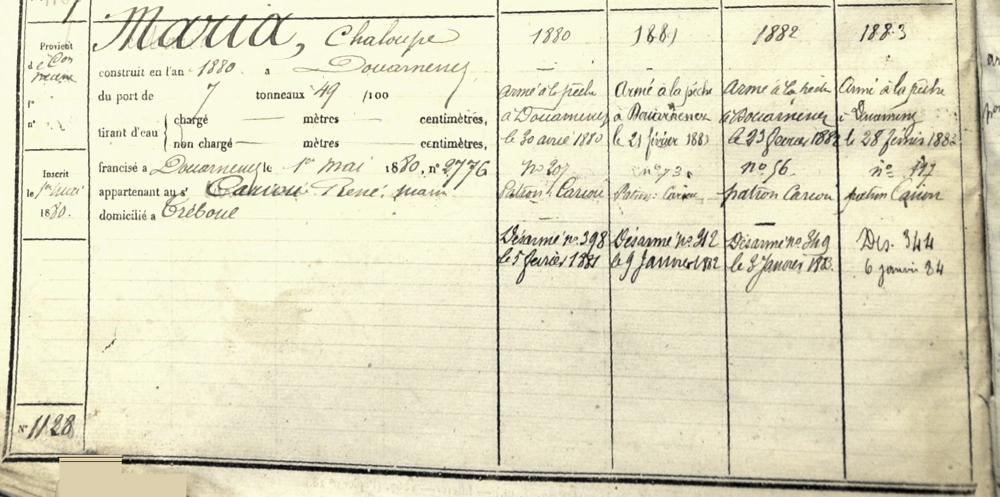 Maria, Chaloupe
Provient
d
construit en l'an 1880 a Douarnenez
du port de 7 tonneaux 49 /100
n°
tirant d'eau
chargé — mètres — centimètres,
non chargé — mètres — centimètres,
francisé a Douarnenez le 1er mai 1880, n° 2776
Inscrit
le 1er mai
1880.
appartenant au sr Cariou René, marin
domicilié a Tréboul
N° 1128
1880
Armé à la pêche
à Douarnenez
le 30 avril 1880
n° 207
Patron: Cariou
Désarmé n° 398
le 5 février 1881
1881
Armé à la pêche
à Douarnenez
le 21 février 1881
n° 73.
Patron: Cariou
Désarmé n° 312
le 9 Janvier 1882
1882
Armé à la pêche
à Douarnenez
le 23 février 1882
n° 56.
patron Cariou
Désarmé n° 349
le 3 Janvier 1883.
1883
Armé à la pêche
à Douarnenez
le 28 février 1883
n°
patron Cariou
Dés. 344
6 janvier 84